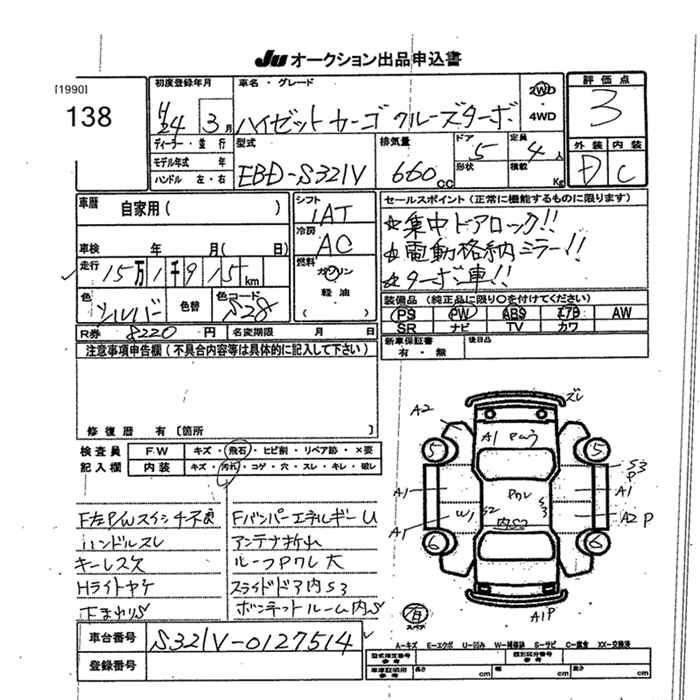 JU オークション出品申込書
[1990]
138
初度登録年月
H24 3月
車名・グレード
ハイゼットカーゴ クルーズターボ
2WD
・
4WD
評価点
3
ディーラー・並行
モデル年式 年
ハンドル 左・右
型式
EBD-S321V
排気量
660cc
ドア
5
形状
定員
4人
積載
Kg
外装 内装
D C
車歴
自家用( )
シフト
IAT
セールスポイント(正常に機能するものに限ります)
☆集中ドアロック!!
☆電動格納ミラー!!
☆ターボ車!!
車検 年 月( 日)
冷房
AC
走行 15万1千915km
燃料
ガソリン
軽油
( )
色
シルバー
色替
色コード
S28
装備品(純正品に限り○を付けてください)
PS PW ABS エアB AW
SR ナビ TV カワ
R券 8220円 名変期限 月 日
新車保証書
有・無
後日品
注意事項申告欄(不具合内容等は具体的に記入して下さい)
修復歴 有〔箇所
検査員
記入欄
FW キズ・飛石・ヒビ割・リペア跡・×要
内装 キズ・汚れ・コゲ・穴・スレ・キレ・破レ
F左P/Wスイッチ不良
ハンドルスレ
キーレス欠
Hライトヤケ
下まわりS
FバンパーエネルギーU
アンテナ折れ
ルーフPワレ大
スライドドア内S3
ボンネットルーム内S
ズレ
A2
A1
5
5
S3
P
A1
Pワレ
A1
A1
W1
S2
S3
内S2
A2 P
6
6
有
スペア
A1P
車台番号 S321V-0127514
登録番号
A-キズ E-エクボ U-凹み W-補修跡 S-サビ C-腐食 XX-交換済
型式指定番号
参考
類別区分番号
参考
車庫証明用
参考
長さ cm 幅 cm 高さ cm